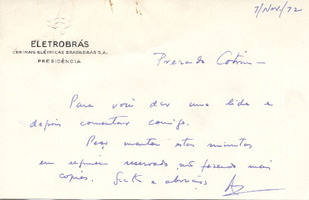 7/Nov/72
ELETROBRÁS
CENTRAIS ELÉTRICAS BRASILEIRAS S.A.
PRESIDÊNCIA
Prezado Cotrim -
Para você dar uma lida e
depois comentar comigo.
Peço manter estas minutas
em regime reservado, não fazendo mais
cópias. Grato e abraços